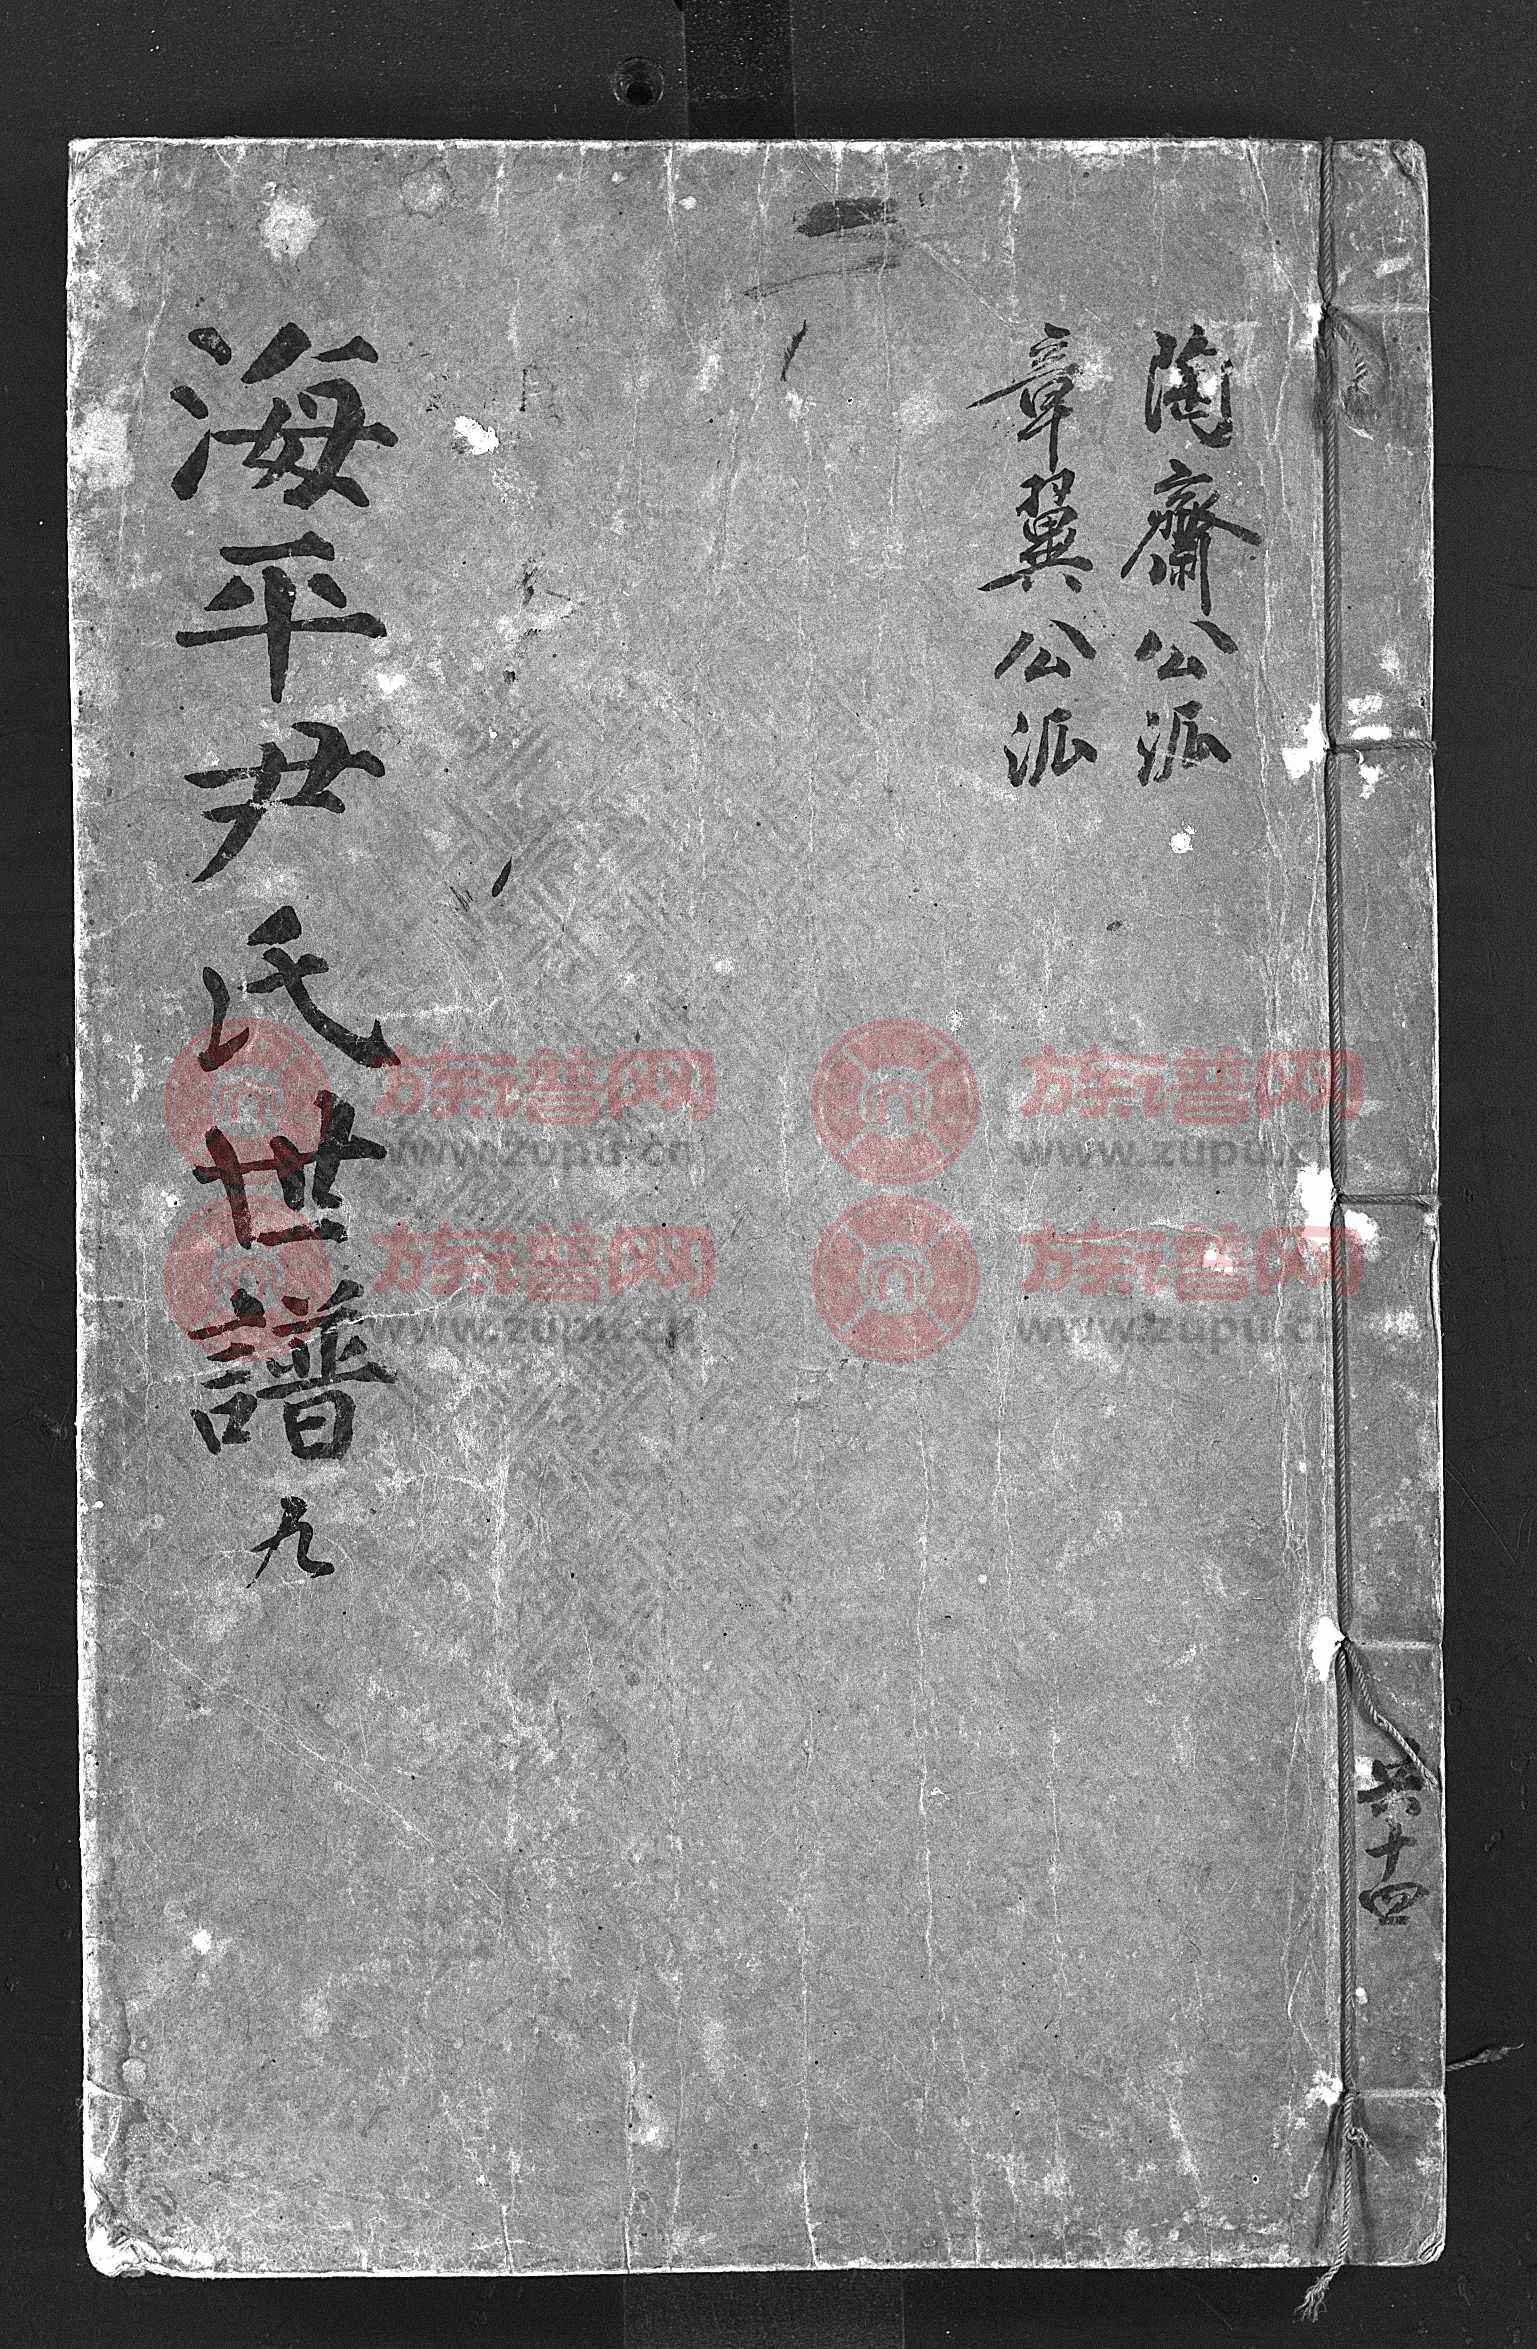 陶齋公派
章翼公派
海平尹氏世譜 九
共十四
族谱网
www.zupu.cn
族谱网
www.zupu.cn
族谱网
www.zupu.cn
族谱网
www.zupu.cn